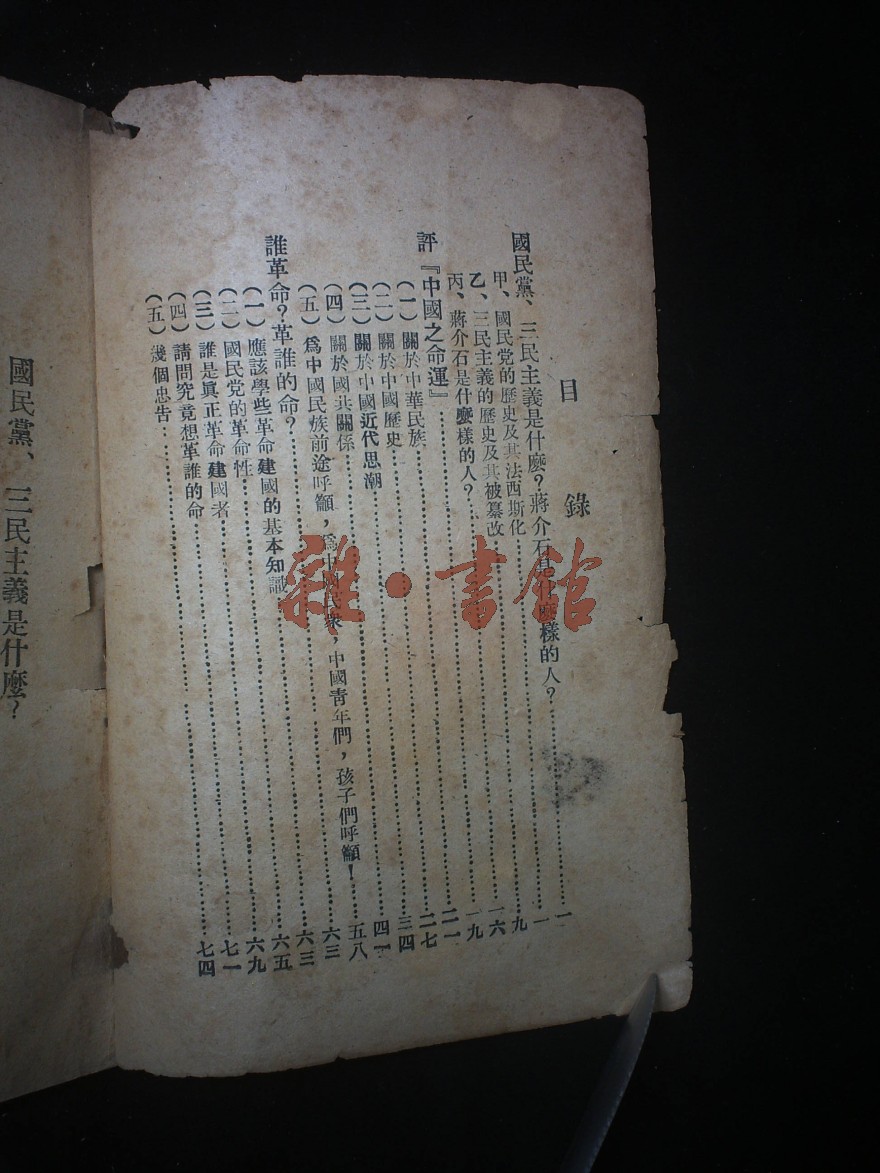 目錄
國民黨、三民主義是什麼？蔣介石是什麼樣的人？……一
甲、國民党的歷史及其法西斯化……一
乙、三民主義的歷史及其被纂改……九
丙、蔣介石是什麼樣的人？……一六
評『中國之命運』……一九
（一）關於中華民族……二一
（二）關於中國歷史……二七
（三）關於中國近代思潮……三四
（四）關於國共關係……四一
（五）爲中國民族前途呼籲，爲中國民衆，中國青年們，孩子們呼籲！……五八
誰革命？革誰的命？……六三
（一）應該學些革命建國的基本知識……六三
（二）國民党的革命性……六五
（三）誰是眞正革命建國者……六九
（四）請問究竟想革誰的命……七一
（五）幾個忠告……七四
國民黨、三民主義是什麼？
雜·書館